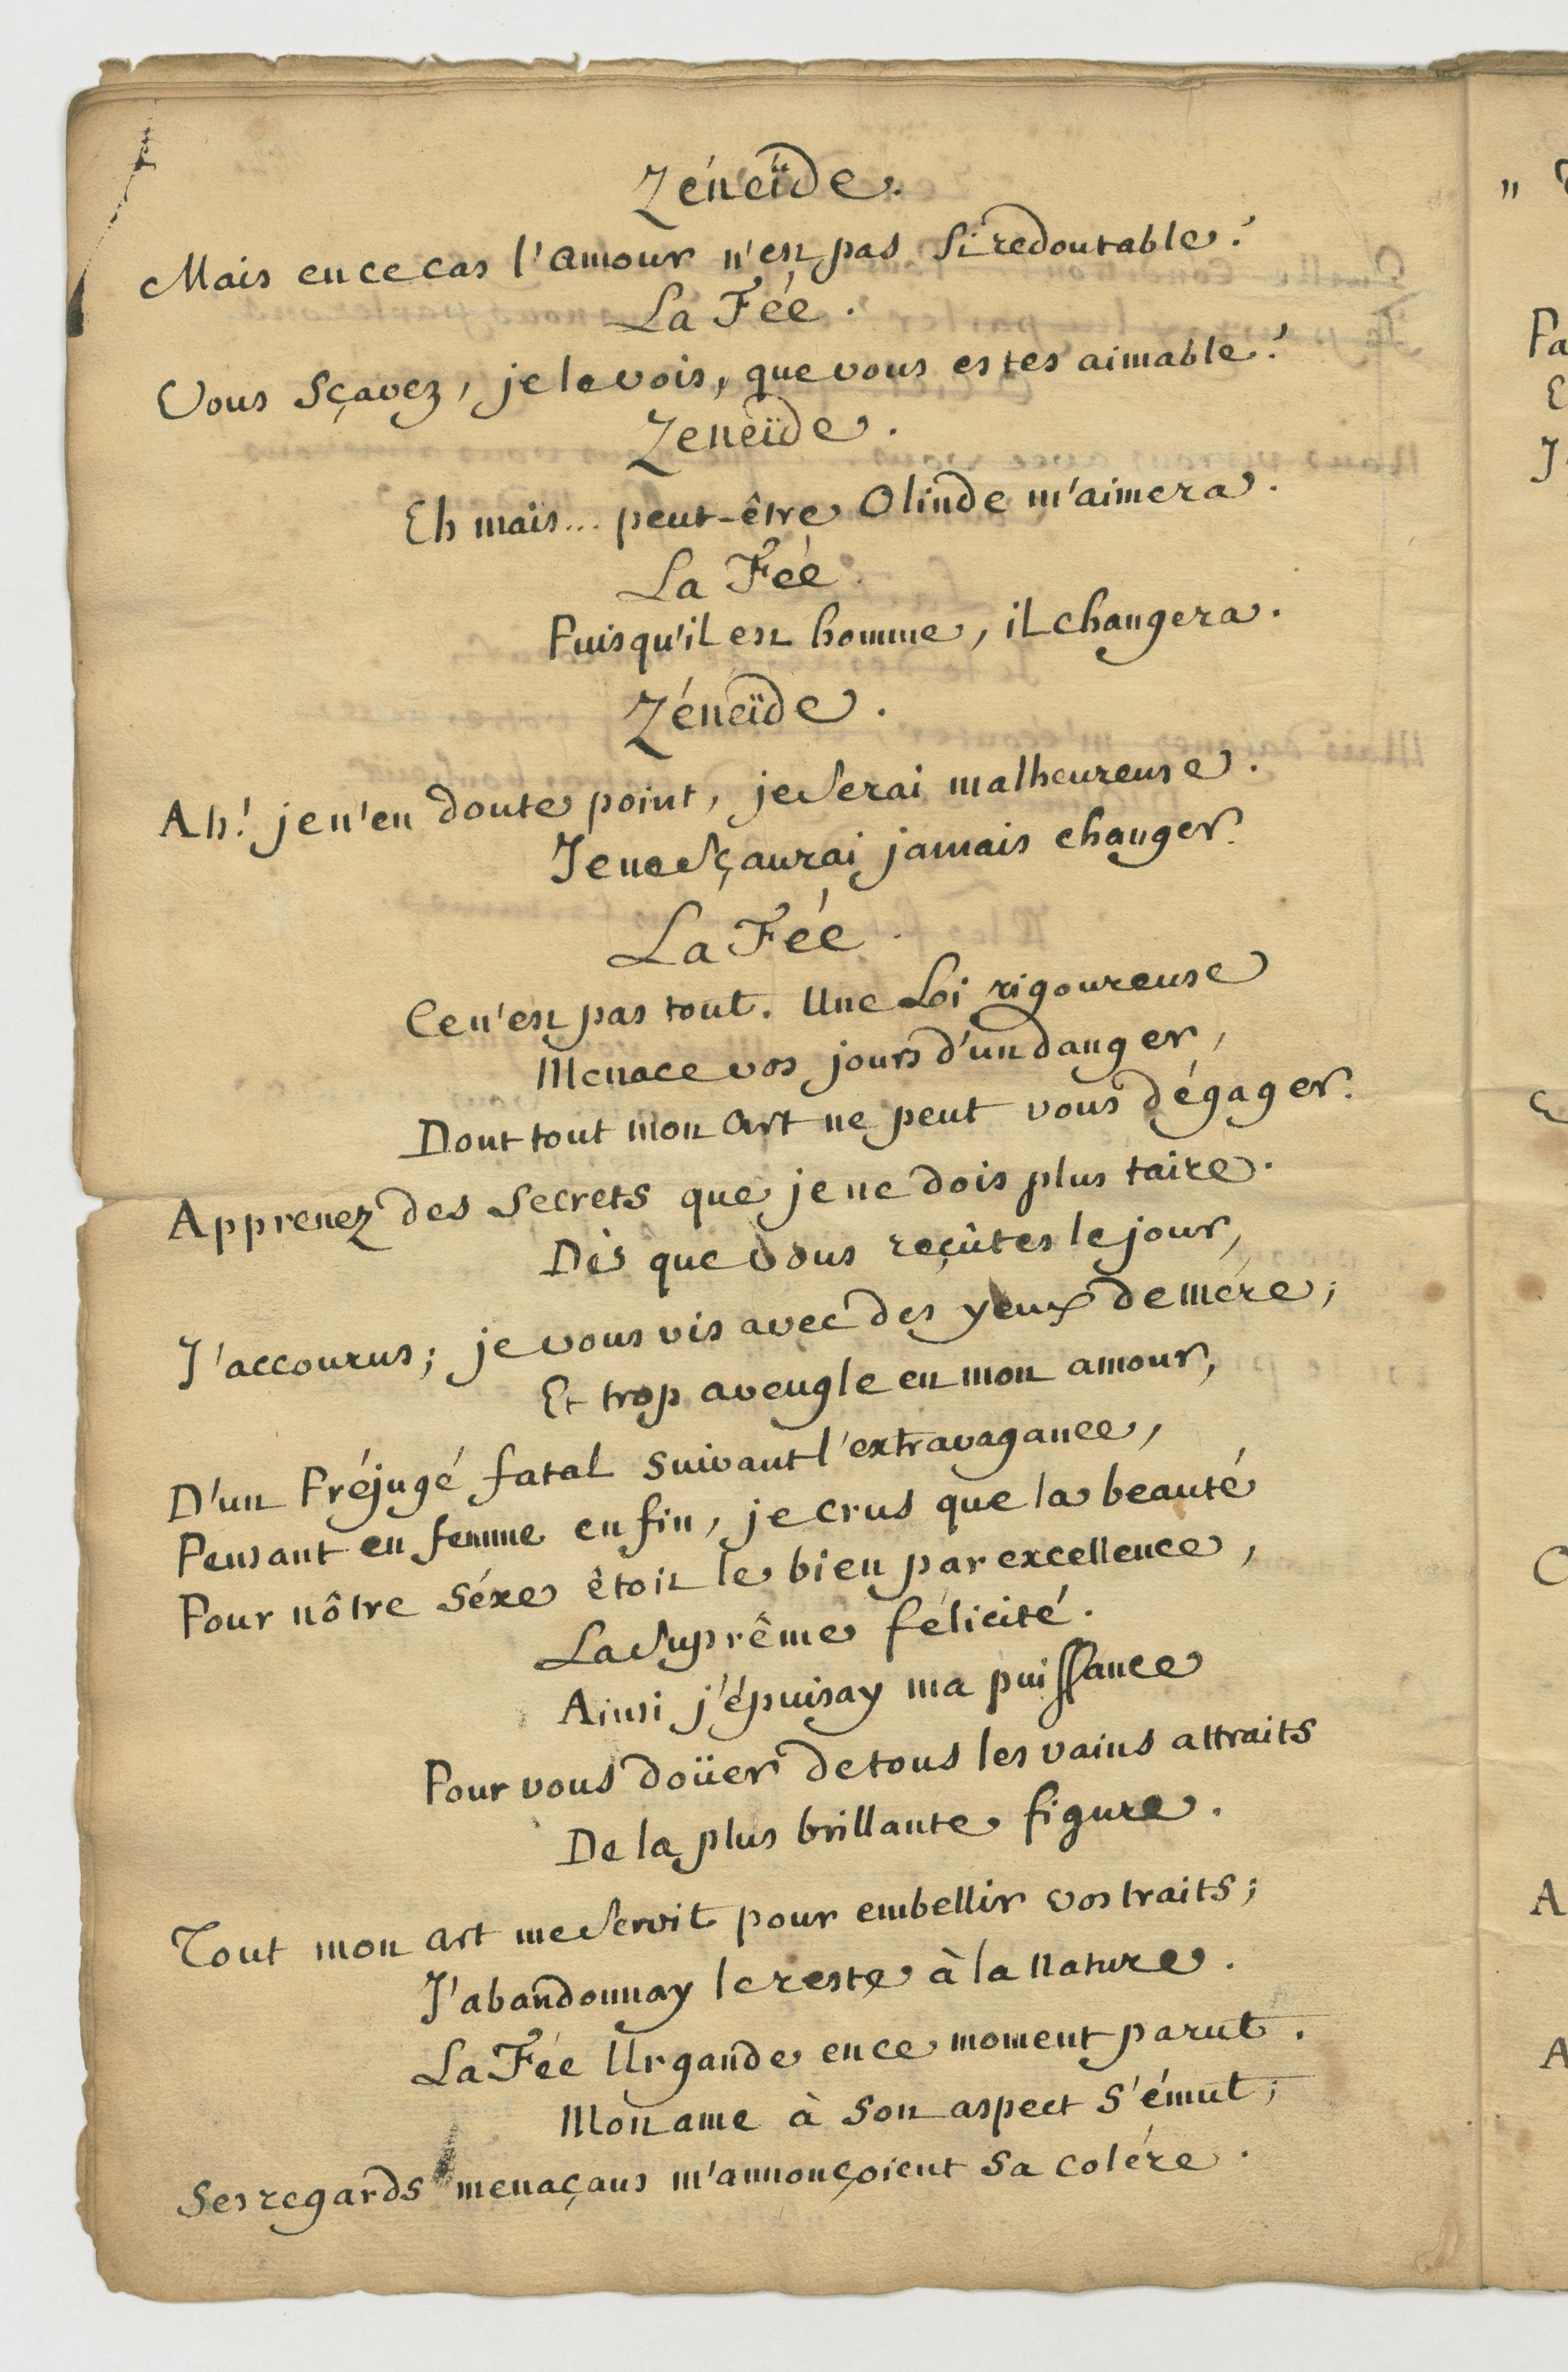 Zéneïde.
Mais en ce cas l'amour n'est pas si redoutable?
La Fée.
Vous sçavez, je le vois, que vous estes aimable?
Zeneïde.
Eh mais... peut-être Olinde m'aimera.
La Fée.
Puisqu'il est homme, il changera.
Zéneïde.
Ah! je n'en doute point, je serai malheureuse.
Je ne sçaurai jamais changer.
La Fée.
Ce n'est pas tout. Une Loi rigoureuse
Menace vos jours d'un danger,
Dont tout mon art ne peut vous dégager.
Apprenez des secrets que je ne dois plus taire.
Dès que vous reçûtes le jour,
J'accourus; je vous vis avec des yeux de mére;
Et trop aveugle en mon amour,
D'un Préjugé fatal suivant l'extravagance,
Pensant en femme enfin, je crus que la beauté
Pour nôtre séxe étoit le bien par excellence,
La suprême félicité.
Ainsi j'épuisay ma puissance
Pour vous doüer de tous les vains attraits
De la plus brillante figure.
Tout mon art me servit pour embellir vos traits;
J'abandonnay le reste à la nature.
La Fée Urgande en ce moment parut.
Mon ame à son aspect s'émut;
Ses regards menaçans m'annonçoient sa colére.